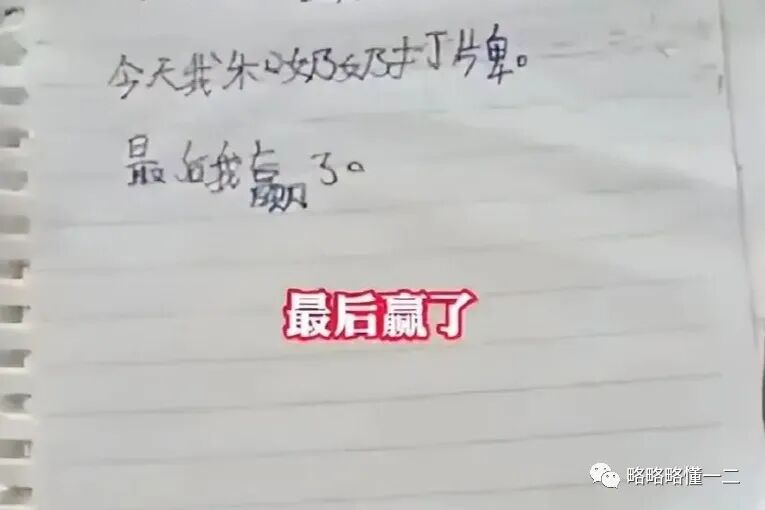 今天我和奶奶打牌。
最后我赢了。
最后赢了
略略略懂一二